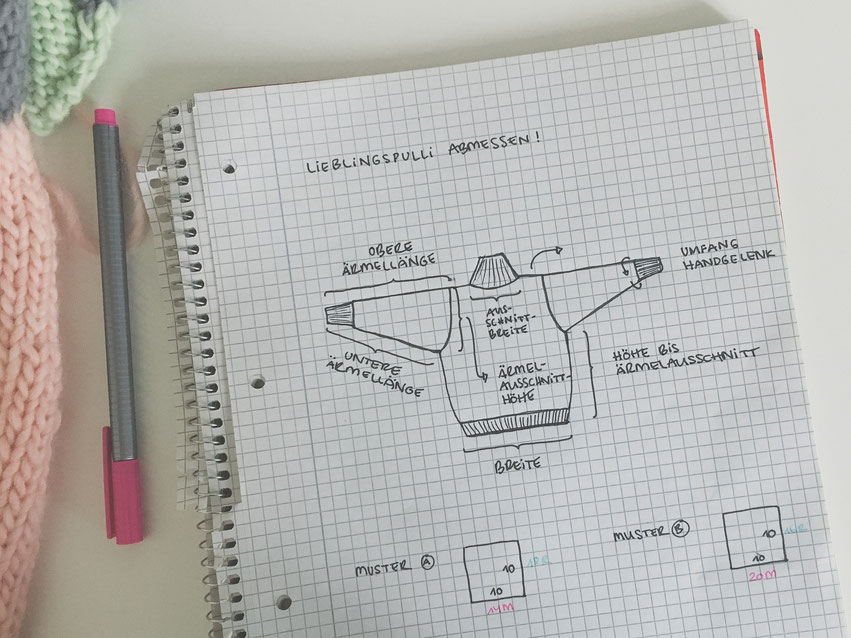 LIEBLINGSPULLI ABMESSEN!
OBERE
ÄRMELLÄNGE
UMFANG
HANDGELENK
AUS-
SCHNITT-
BREITE
UNTERE
ÄRMELLÄNGE
ÄRMEL-
AUSSCHNITT-
HÖHE
HÖHE BIS
ÄRMELAUSSCHNITT
BREITE
MUSTER A
10
10
14M
MUSTER B
10
10
20M